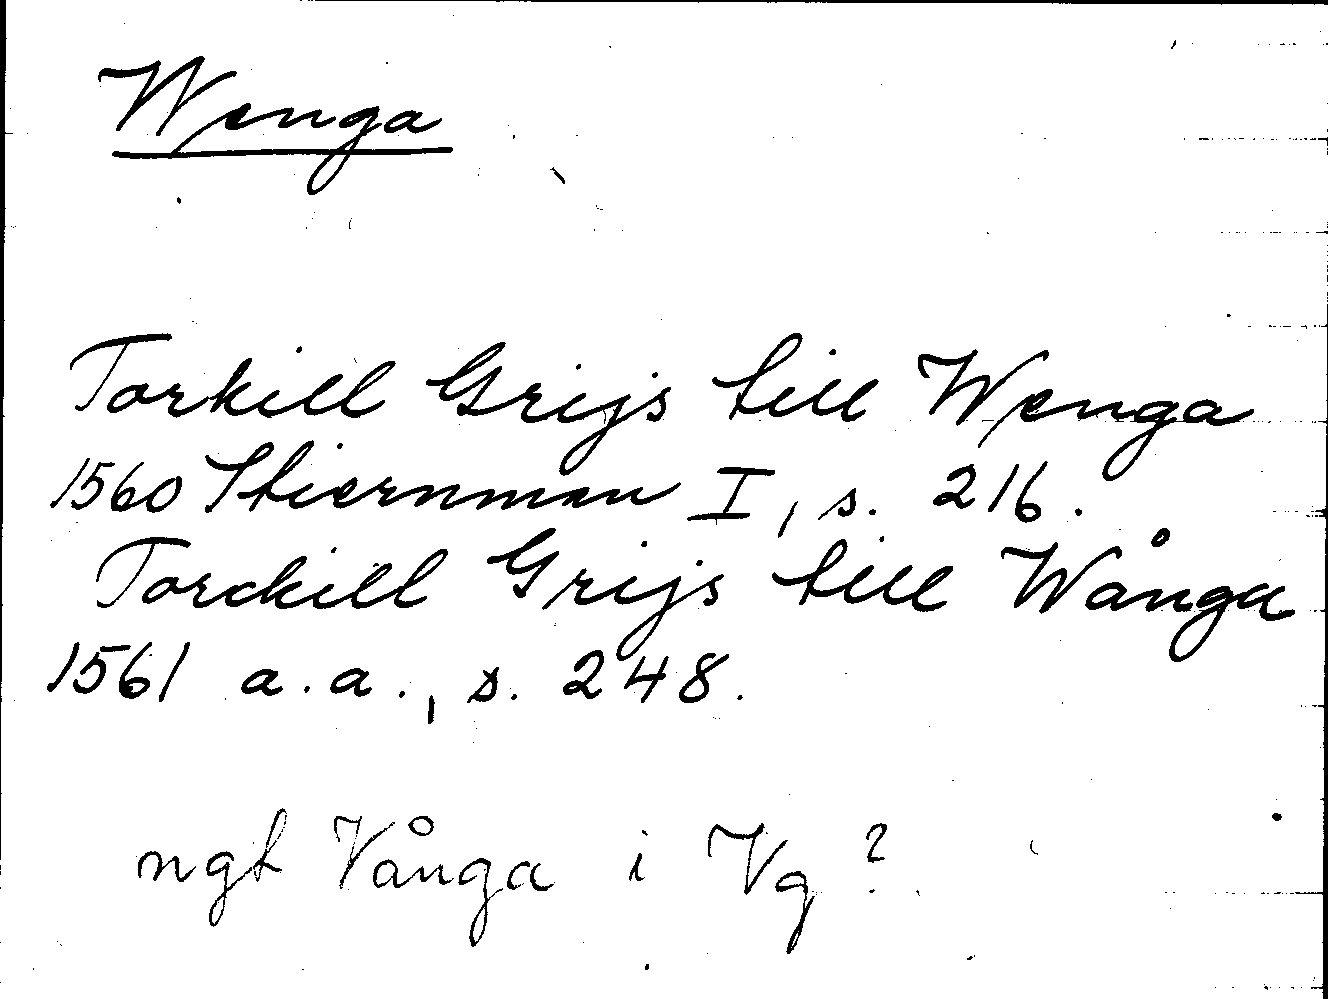 Wenga
Torkill Grijs till Wenga
1560 Stiernman I, s. 216.
Torckill Grijs till Wånga
1561 a.a., s. 248.
ngt Vånga i Vg?